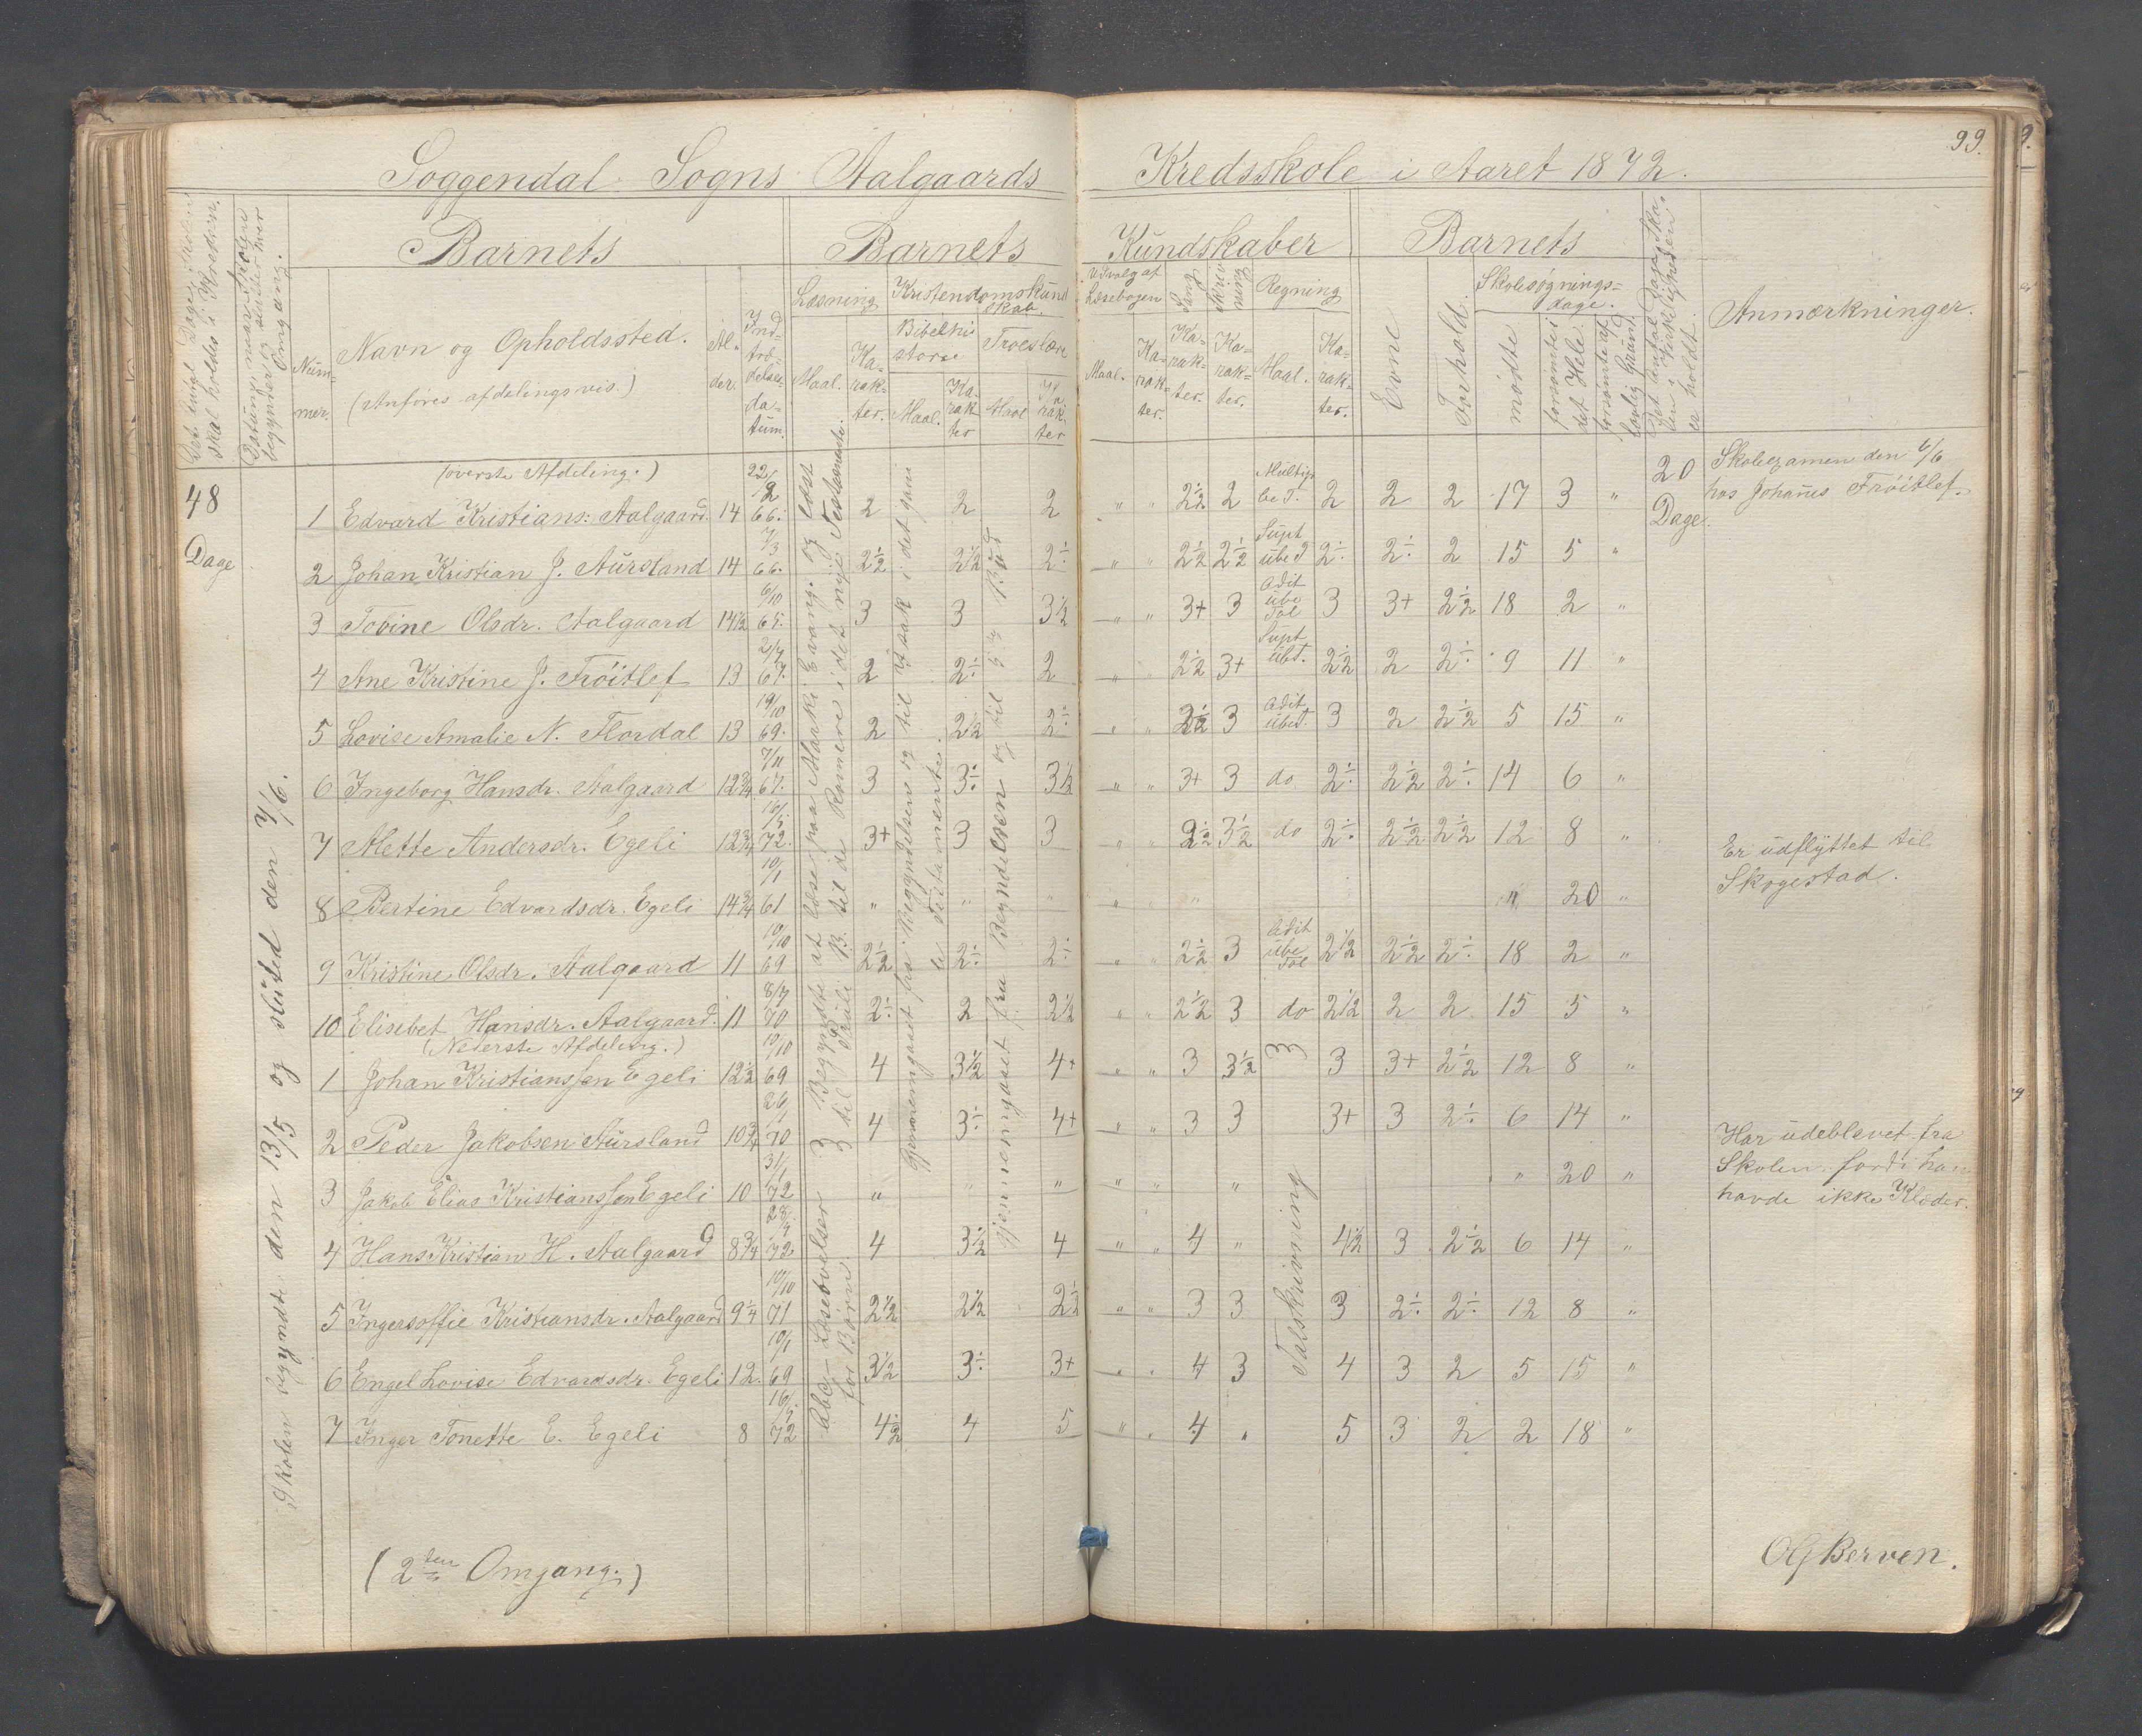 99.
Soggendal Sogns Aalgaards Kredsskole i Aaret 1872.
Det antal Dage Skolen skal holdes i Kredsen.
Datum, naar Skolen begynder og slutter hver Omgang.
Barnets
Barnets Kundskaber
Barnets
Det antal Dage Skolen i Virkeligheden er holdt.
Anmærkninger.
Nummer.
Navn og Opholdssted.
(Anføres afdelingsvis.)
Alder.
Indtrædelsesdatum.
Læsning
Kristendomskundskab.
Udvalg af Læsebogen
Sang
Skrivning
Regning
Evne
Forhold.
Skolesøgningsdage.
Bibelhistorie
Troeslære
Maal.
Karakter.
Maal.
Karakter
Maal
Karakter
Maal.
Karakter.
Karakter.
Karakter.
Maal.
Karakter.
mødte
forsømte i det Hele.
forsømte af lovlig Grund.
48 Dage
Skolen begyndte den 13/5 og sluted den 7/6.
(øverste Afdeling.)
1 Edvard Kristians: Aalgaard. 14 22/2 66. 2 2 2 " " 2½ 2 Multip be T. 2 2 2 17 3 "
20 Dage.
Skoleexamen den 6/6
hos Johannes Frøitlef.
2 Johan Kristian J. Aursland 14 7/3 66. 2½ 2½ 2÷ " " 2½ 2½ Supt übe T 2÷ 2÷ 2 15 5 "
3 Tovine Olsdr. Aalgaard 14½ 6/10 65. 3 3 3½ " " 3+ 3 Adit übe Tal 3 3+ 2½ 18 2 "
4 Ane Kristine J. Frøitlef 13 2/7 67. 2 2÷ 2 " " 2½ 3+ Supt übT. 2½ 2 2÷ 9 11 "
5 Lovise Amalie N. Flordal 13 19/10 69. 2 2½ 2÷ " " 2½ 3 Adit übeT. 3 2 2½ 5 15 "
6 Ingeborg Hansdr. Aalgaard 12¾ 7/11 67. 3 3÷ 3½ " " 3+ 3 do 2÷ 2½ 2÷ 14 6 "
7 Mette Andersdr. Egeli 12¾ 16/5 72. 3+ 3 3 " " 2½ 3½ do 2÷ 2½ 2½ 12 8 "
8 Bertine Edvardsdr. Egeli 14¾ 10/1 61 " " " " " " " 20 "
Er udflyttet til
Skogestad.
9 Kristine Olsdr. Aalgaard 11 10/10 69 2½ 2÷ 2÷ " " 2½ 3 Adit übe Tal 2½ 2½ 2÷ 18 2 "
10 Elisebet Hansdr. Aalgaard. 11 8/7 70 2÷ 2 2½ " " 2½ 3 do 2½ 2 2 15 5 "
(Nederste Afdeling.)
1 Johan Kristianssen Egeli 12½ 10/10 69 4 3½ 4+ " " 3 3½ 3 3 3+ 2½ 12 8 "
2 Peder Jakobsen Aursland 10¾ 26/1 70 4 3÷ 4+ " " 3 3 3+ 3 2÷ 6 14 "
3 Jakob Elias Kristianssen Egeli 10 31/1 72 " " " " " " " 20 "
Har udeblevet fra
Skolen fordi han
havde ikke Klæder.
4 Hans Kristian H. Aalgaard 8¾ 72 4 3½ 4 " " 4 " 4½ 3 2½ 6 14 "
5 Ingersoffie Kristiansdr. Aalgaard 9¼ 10/10 71 2½ 2½ 2½ " " 3 3 3 2÷ 2÷ 12 8 "
6 Engel Lovise Edvardsdr. Egeli 12. 10/1 69 3½ 3÷ 3+ " " 4 3 4 3 2 5 15 "
7 Inger Tonette E. Egeli 8 16/5 72 4½ 4 5 " " 4 " 5 3 2 2 18 "
3 Begyndte at læse paa Marki Evang. og læst
3 til Pauli B. til de Romere i det nye Testamente.
Gjennemgaaet fra Begyndelsen og til Isak i det gamle Testamente.
Gjennemgaaet fra Begyndelsen og til 5te Bud
Abc. Læseøvelser
for Børn
Talskrivning
(2den Omgang.)
OG Berven.